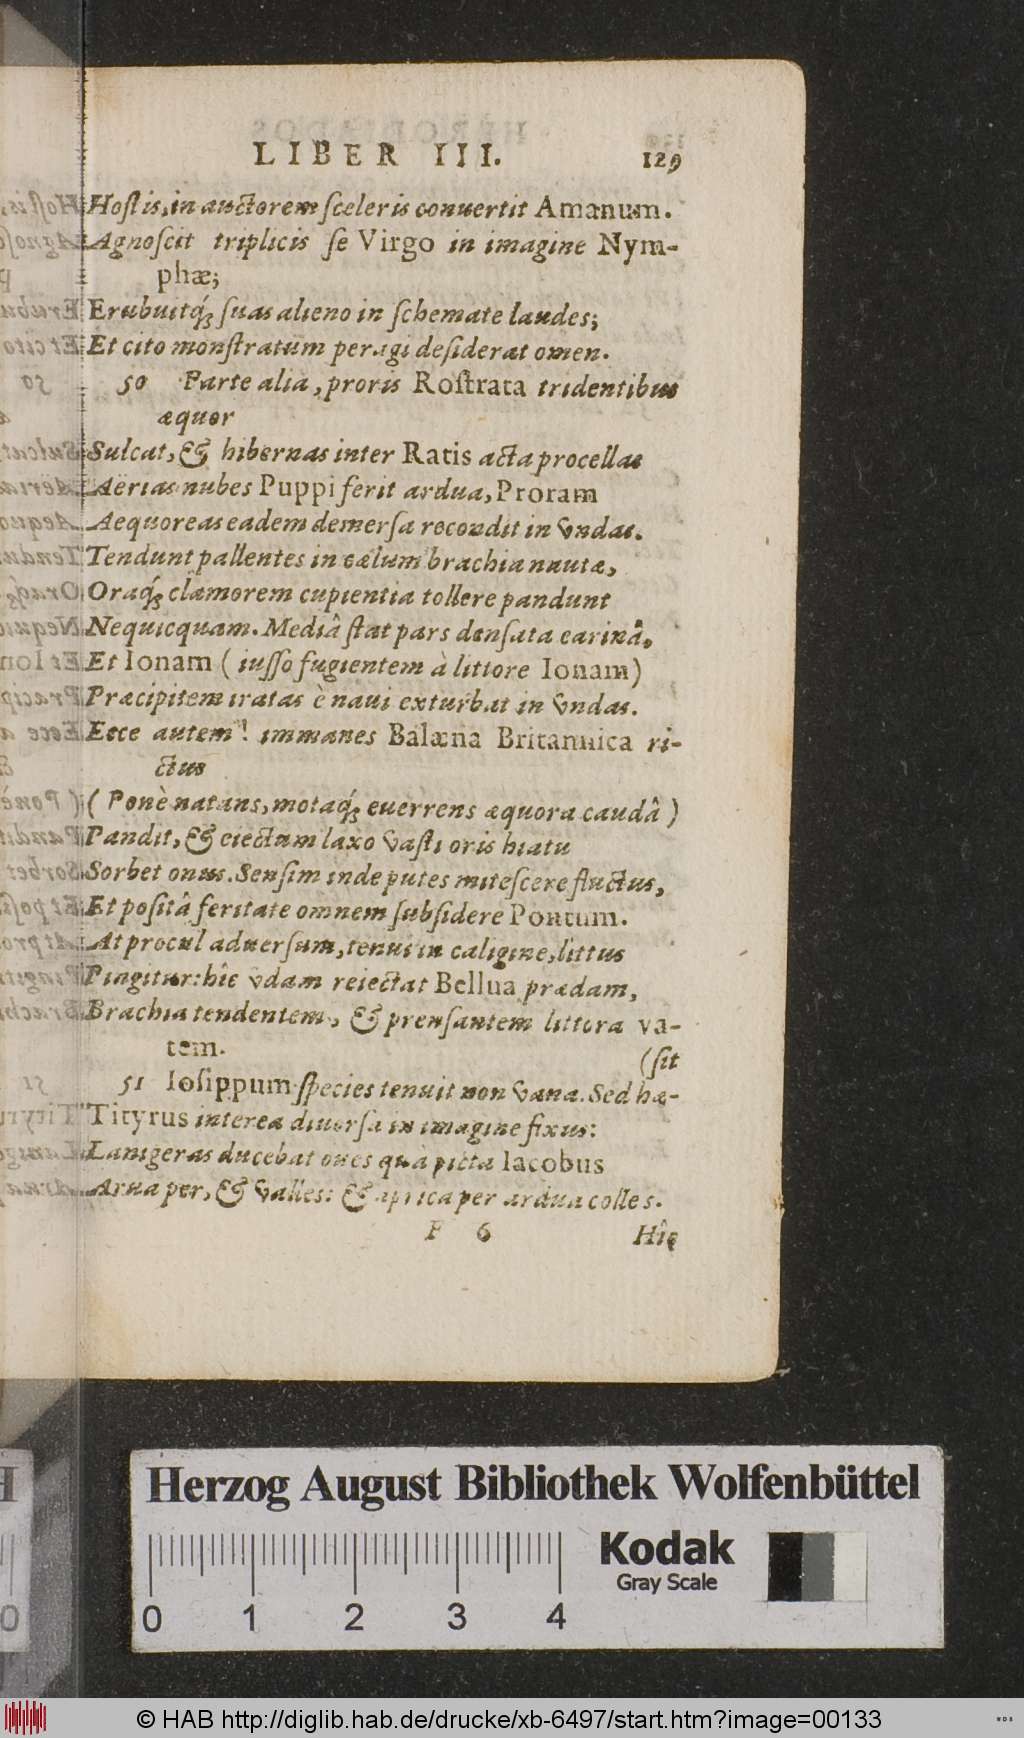 LIBER III. 129
Hostis, in auctorem sceleris conuertit Amanum.
Agnoscit triplicis se Virgo in imagine Nym-
phæ;
Erubuitq́; suas alieno in schemate laudes;
Et cito monstratum peragi desiderat omen.
50 Parte alia, proris Rostrata tridentibus
æquor
Sulcat, & hibernas inter Ratis acta procellas
Aërias nubes Puppi ferit ardua, Proram
Aequoreas eadem demersa recondit in vndas.
Tendunt pallentes in cælum brachia nautæ,
Oraq́; clamorem cupientia tollere pandunt
Nequicquam. Mediâ stat pars densata carinâ,
Et Ionam ( iusso fugientem à littore Ionam)
Præcipitem iratas è naui exturbat in vndas.
Ecce autem! immanes Balæna Britannica ri-
ctus
( Ponè natans, motaq́; euerrens æquora caudâ )
Pandit, & eiectum laxo vasti oris hiatu
Sorbet onus. Sensim inde putes mitescere fluctus,
Et positâ feritate omnem subsidere Pontum.
At procul aduersum, tenui in caligine, littus
Pingitur: hîc vdam reiectat Bellua prædam,
Brachia tendentem, & prensantem littora va-
tem. (sit
51 Iosippum species tenuit non vana. Sed hæ-
Tityrus interea diuersa in imagine fixus:
Lanigeras ducebat oues quà picta Iacobus
Arua per, & valles: & aprica per ardua colles.
P 6 Hîc
Herzog August Bibliothek Wolfenbüttel
Kodak
Gray Scale
0 1 2 3 4
© HAB http://diglib.hab.de/drucke/xb-6497/start.htm?image=00133